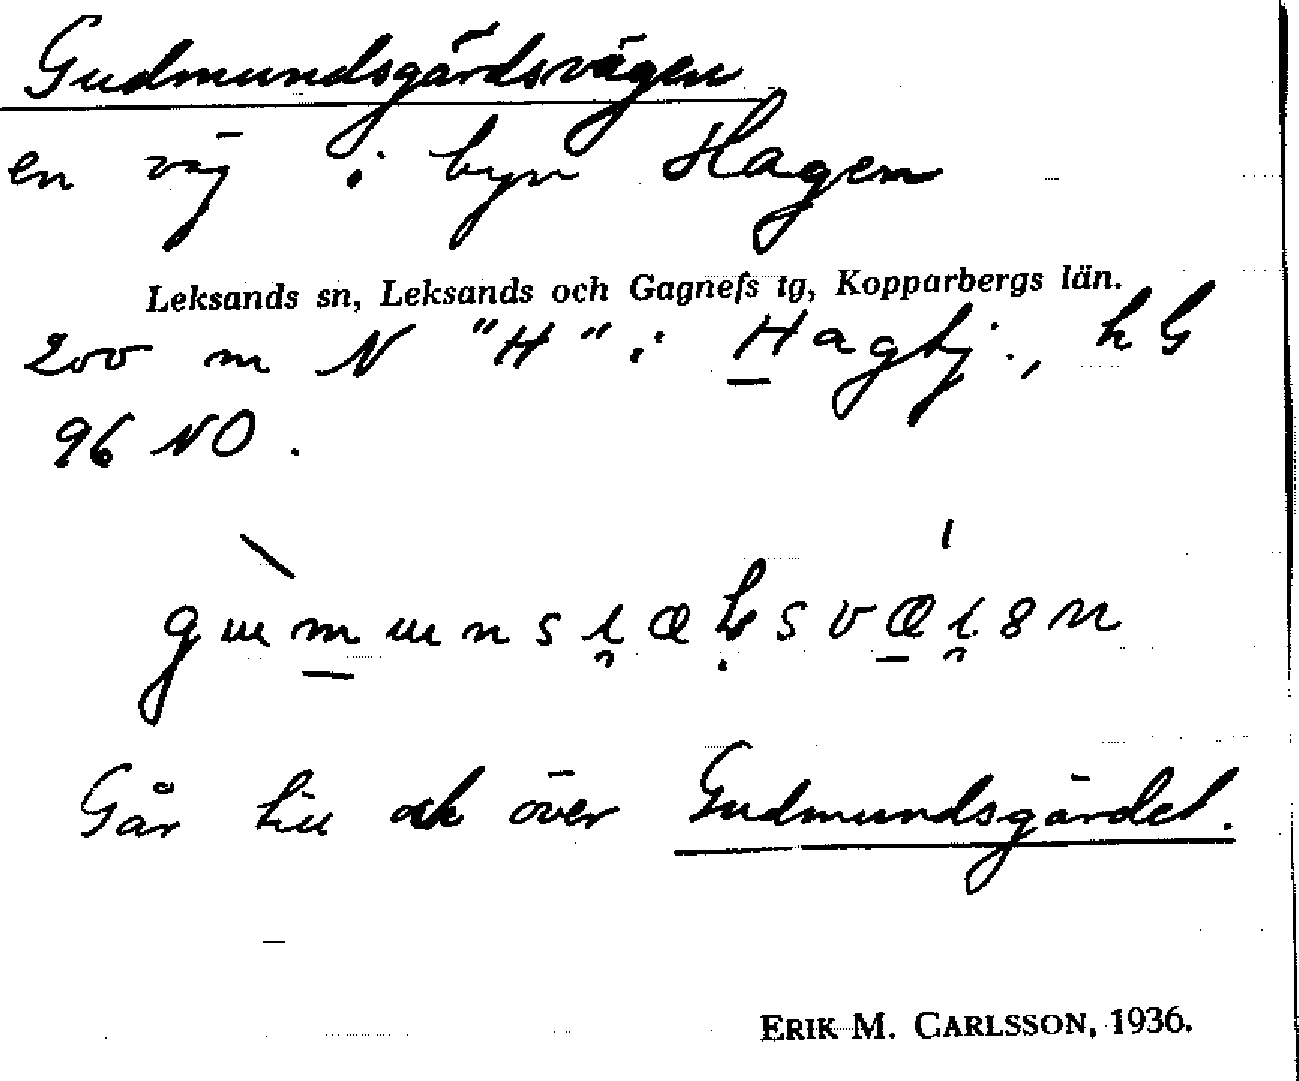 Gudmundsgärdsvägen
en väg i byn Hagen
Leksands sn, Leksands och Gagnefs tg, Kopparbergs län.
200 m N "H" i Hagbj., h G
96 NO.
Går till och över Gudmundsgärdet.
ERIK M. CARLSSON, 1936.